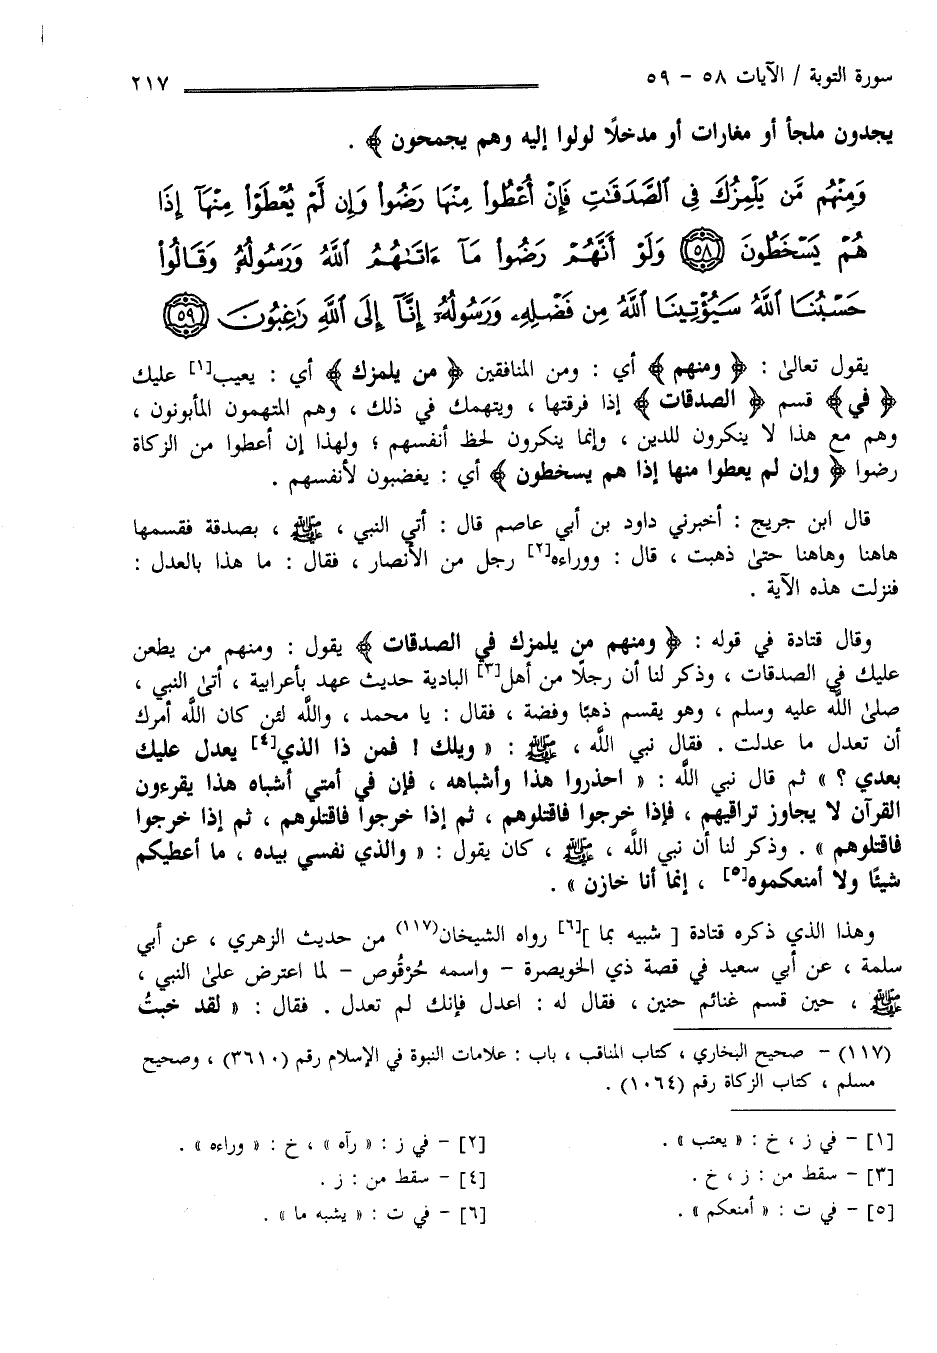 سورة التوبة / الآيات ٥٨ - ٥٩ ٢١٧
يجدون ملجأ أو مغارات أو مدخلًا لولوا إليه وهم يجمحون ﴾ .
وَمِنْهُم مَّن يَلْمِزُكَ فِي ٱلصَّدَقَٰتِ فَإِنْ أُعْطُوا۟ مِنْهَا رَضُوا۟ وَإِن لَّمْ يُعْطَوْا۟ مِنْهَآ إِذَا
هُمْ يَسْخَطُونَ ٥٨ وَلَوْ أَنَّهُمْ رَضُوا۟ مَآ ءَاتَىٰهُمُ ٱللَّهُ وَرَسُولُهُۥ وَقَالُوا۟
حَسْبُنَا ٱللَّهُ سَيُؤْتِينَا ٱللَّهُ مِن فَضْلِهِۦ وَرَسُولُهُۥٓ إِنَّآ إِلَى ٱللَّهِ رَٰغِبُونَ ٥٩
يقول تعالىٰ : ﴿ ومنهم ﴾ أي : ومن المنافقين ﴿ من يلمزك ﴾ أي : يعيب[١] عليك
﴿ في ﴾ قسم ﴿ الصدقات ﴾ إذا فرقتها ، ويتهمك في ذلك ، وهم المتهمون المأبونون ،
وهم مع هذا لا ينكرون للدين ، وإنما ينكرون لحظ أنفسهم ؛ ولهذا إن أعطوا من الزكاة
رضوا ﴿ وإن لم يعطوا منها إذا هم يسخطون ﴾ أي : يغضبون لأنفسهم .
قال ابن جريج : أخبرني داود بن أبي عاصم قال : أتي النبي ، ﷺ ، بصدقة فقسمها
هاهنا وهاهنا حتىٰ ذهبت ، قال : ووراءه[٢] رجل من الأنصار ، فقال : ما هذا بالعدل :
فنزلت هذه الآية .
وقال قتادة في قوله : ﴿ ومنهم من يلمزك في الصدقات ﴾ يقول : ومنهم من يطعن
عليك في الصدقات ، وذكر لنا أن رجلًا من أهل[٣] البادية حديث عهد بأعرابية ، أتىٰ النبي ،
صلىٰ اللَّه عليه وسلم ، وهو يقسم ذهبًا وفضة ، فقال : يا محمد ، واللَّه لئن كان اللَّه أمرك
أن تعدل ما عدلت . فقال نبي اللَّه ، ﷺ : « ويلك ! فمن ذا الذي[٤] يعدل عليك
بعدي ؟ » ثم قال نبي اللَّه : « احذروا هذا وأشباهه ، فإن في أمتي أشباه هذا يقرءون
القرآن لا يجاوز تراقيهم ، فإذا خرجوا فاقتلوهم ، ثم إذا خرجوا فاقتلوهم ، ثم إذا خرجوا
فاقتلوهم » . وذكر لنا أن نبي اللَّه ، ﷺ ، كان يقول : « والذي نفسي بيده ، ما أعطيكم
شيئًا ولا أمنعكموه[٥] ، إنما أنا خازن » .
وهذا الذي ذكره قتادة [ شبيه بما ][٦] رواه الشيخان(١١٧) من حديث الزهري ، عن أبي
سلمة ، عن أبي سعيد في قصة ذي الخويصرة – واسمه حُرْقُوص – لما اعترض علىٰ النبي ،
ﷺ ، حين قسم غنائم حنين ، فقال له : اعدل فإنك لم تعدل . فقال : « لقد خبتُ
(١١٧) – صحيح البخاري ، كتاب المناقب ، باب : علامات النبوة في الإسلام رقم (٣٦١٠) ، وصحيح
مسلم ، كتاب الزكاة رقم (١٠٦٤) .
[١] – في ز ، خ : « يعتب » . [٢] – في ز : « رآه » ، خ : « وراءه » .
[٣] – سقط من : ز ، خ . [٤] – سقط من : ز .
[٥] – في ت : « أمنعكم » . [٦] – في ت : « يشبه ما » .